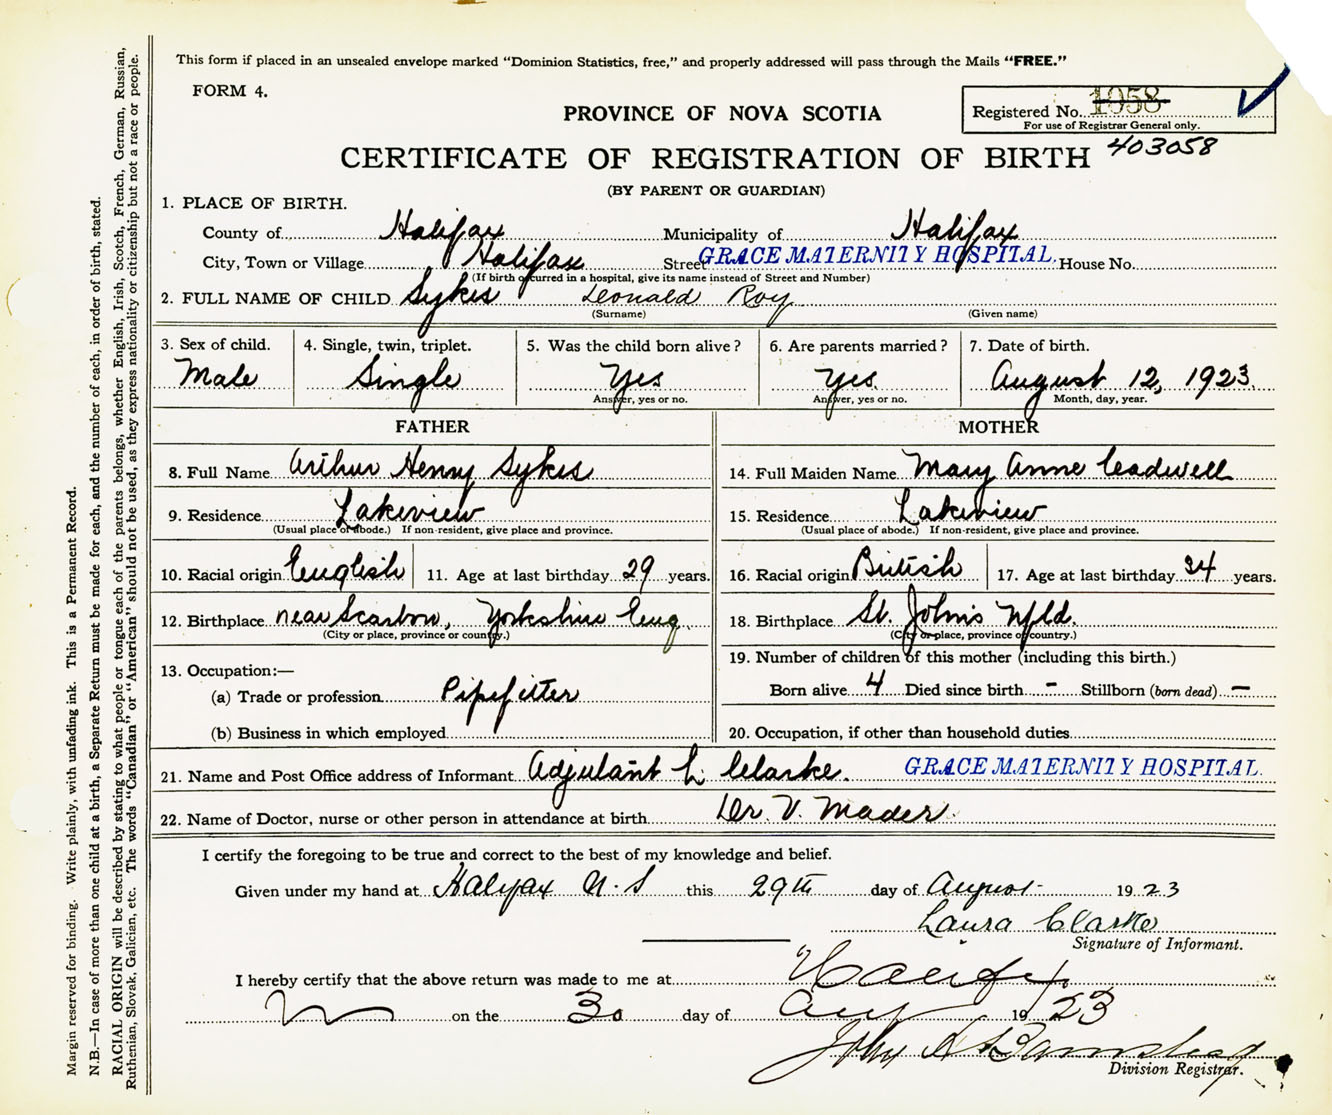 This form if placed in an unsealed envelope marked "Dominion Statistics, free," and properly addressed will pass through the Mails "FREE."
FORM 4.
PROVINCE OF NOVA SCOTIA
Registered No. 1058
For use of Registrar General only.
403058
CERTIFICATE OF REGISTRATION OF BIRTH
(BY PARENT OR GUARDIAN)
1. PLACE OF BIRTH.
County of Halifax Municipality of Halifax
City, Town or Village Halifax Street GRACE MATERNITY HOSPITAL House No.
(If birth occurred in a hospital, give its name instead of Street and Number)
2. FULL NAME OF CHILD Sykes Leonald Roy
(Surname) (Given name)
3. Sex of child. 4. Single, twin, triplet. 5. Was the child born alive? 6. Are parents married? 7. Date of birth.
Male Single Yes Yes August 12, 1923.
Answer, yes or no. Answer, yes or no. Month, day, year.
FATHER
8. Full Name Arthur Henry Sykes
9. Residence Lakeview
(Usual place of abode.) If non-resident, give place and province.
10. Racial origin English 11. Age at last birthday 29 years.
12. Birthplace near Scarboro, Yorkshire Eng.
(City or place, province or country.)
13. Occupation:—
(a) Trade or profession Pipefitter
(b) Business in which employed
MOTHER
14. Full Maiden Name Mary Anne Cadwell
15. Residence Lakeview
(Usual place of abode.) If non-resident, give place and province.
16. Racial origin British 17. Age at last birthday 34 years.
18. Birthplace St. John's Nfld.
(City or place, province or country.)
19. Number of children of this mother (including this birth.)
Born alive 4 Died since birth - Stillborn (born dead) -
20. Occupation, if other than household duties
21. Name and Post Office address of Informant Adjutant L. Clarke. GRACE MATERNITY HOSPITAL.
22. Name of Doctor, nurse or other person in attendance at birth Dr. V. Mader.
I certify the foregoing to be true and correct to the best of my knowledge and belief.
Given under my hand at Halifax N.S this 29th day of August 1923
Laura Clarke
Signature of Informant.
I hereby certify that the above return was made to me at Halifax
on the 30 day of Aug 19 23
John
Division Registrar.
Margin reserved for binding. Write plainly, with unfading ink. This is a Permanent Record.
N.B.—In case of more than one child at a birth, a Separate Return must be made for each, and the number of each, in order of birth, stated.
RACIAL ORIGIN will be described by stating to what people or tongue each of the parents belongs, whether English, Irish, Scotch, French, German, Russian,
Ruthenian, Slovak, Galician, etc. The words "Canadian" or "American" should not be used, as they express nationality or citizenship but not a race or people.